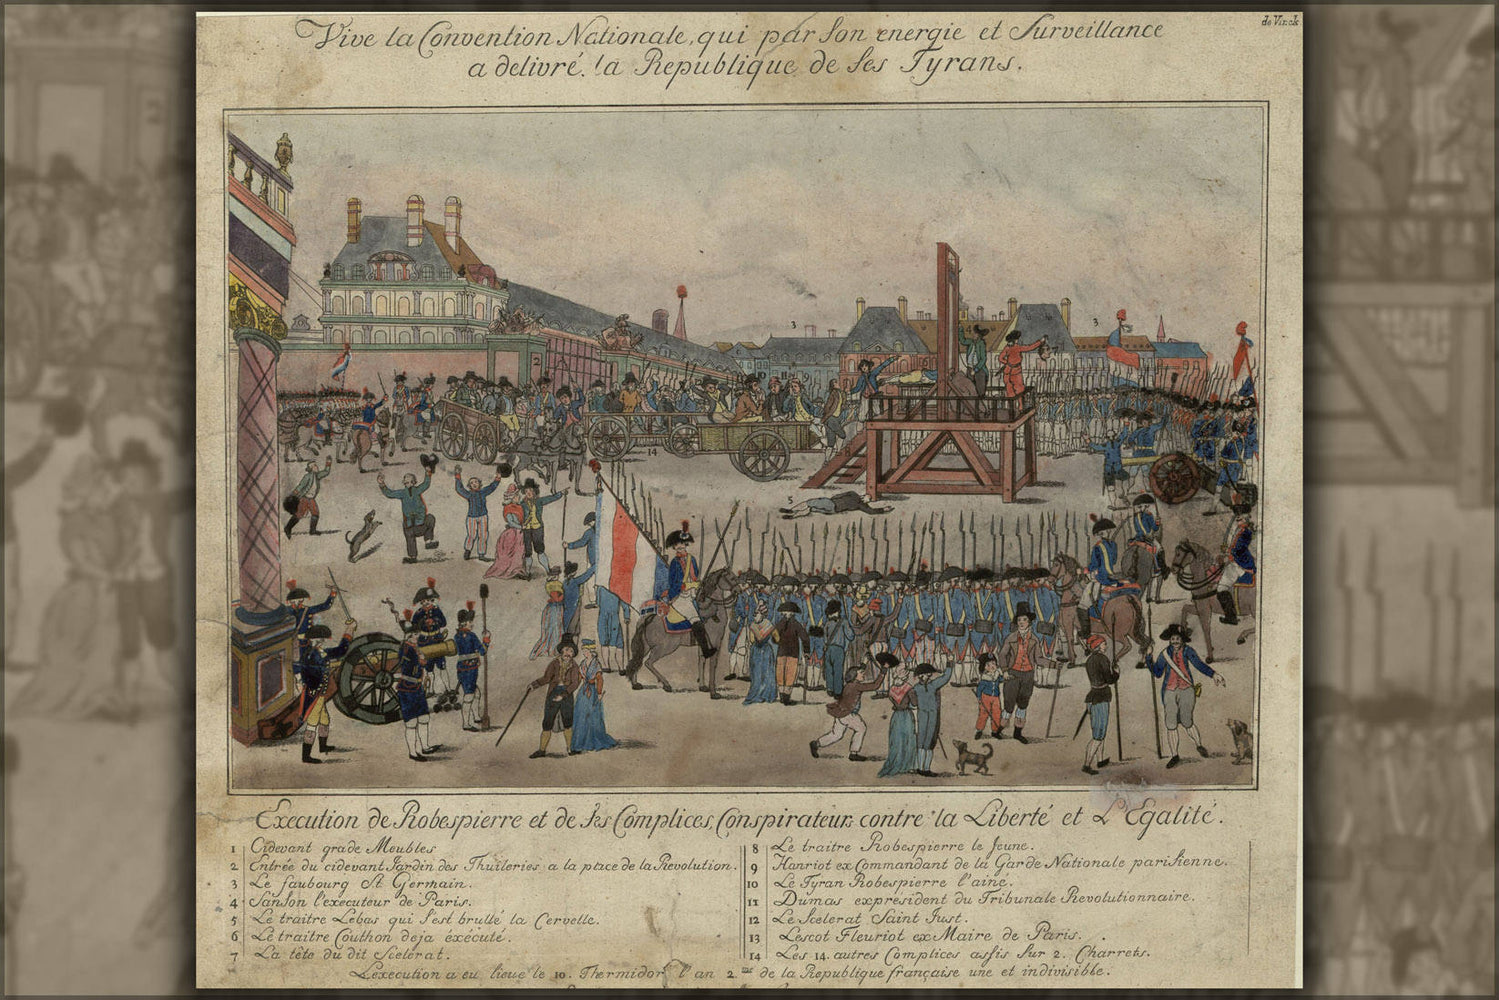 de Vinck
Vive la Convention Nationale, qui par son energie et Surveillance
a delivré la Republique de ses Tyrans.
2
3
3
4
7
10
11
9
14
8
5
Execution de Robespierre et de ses Complices, Conspirateurs contre la Liberté et L'Egalité.
1 Cidevant grade Meubles
2 Entrée du cidevant Jardin des Thuileries a la place de la Revolution.
3 Le faubourg St Germain.
4 Sanson l'executeur de Paris.
5 Le traitre Lebas qui s'est brullé la Cervelle.
6 Le traitre Couthon deja éxécuté.
7 La tête du dit Scelerat.
8 Le traitre Robespierre le Jeune.
9 Hanriot ex Commandant de la Garde Nationale parisienne.
10 Le Tyran Robespierre l'ainé.
11 Dumas expresident du Tribunale Revolutionnaire.
12 Le Scelerat Saint Just.
13 Lescot Fleuriot ex Maire de Paris.
14 Les 14. autres Complices assis sur 2. Charrets.
L'execution a eu lieue le 10. Thermidor l'an 2.me de la Republique française une et indivisible.